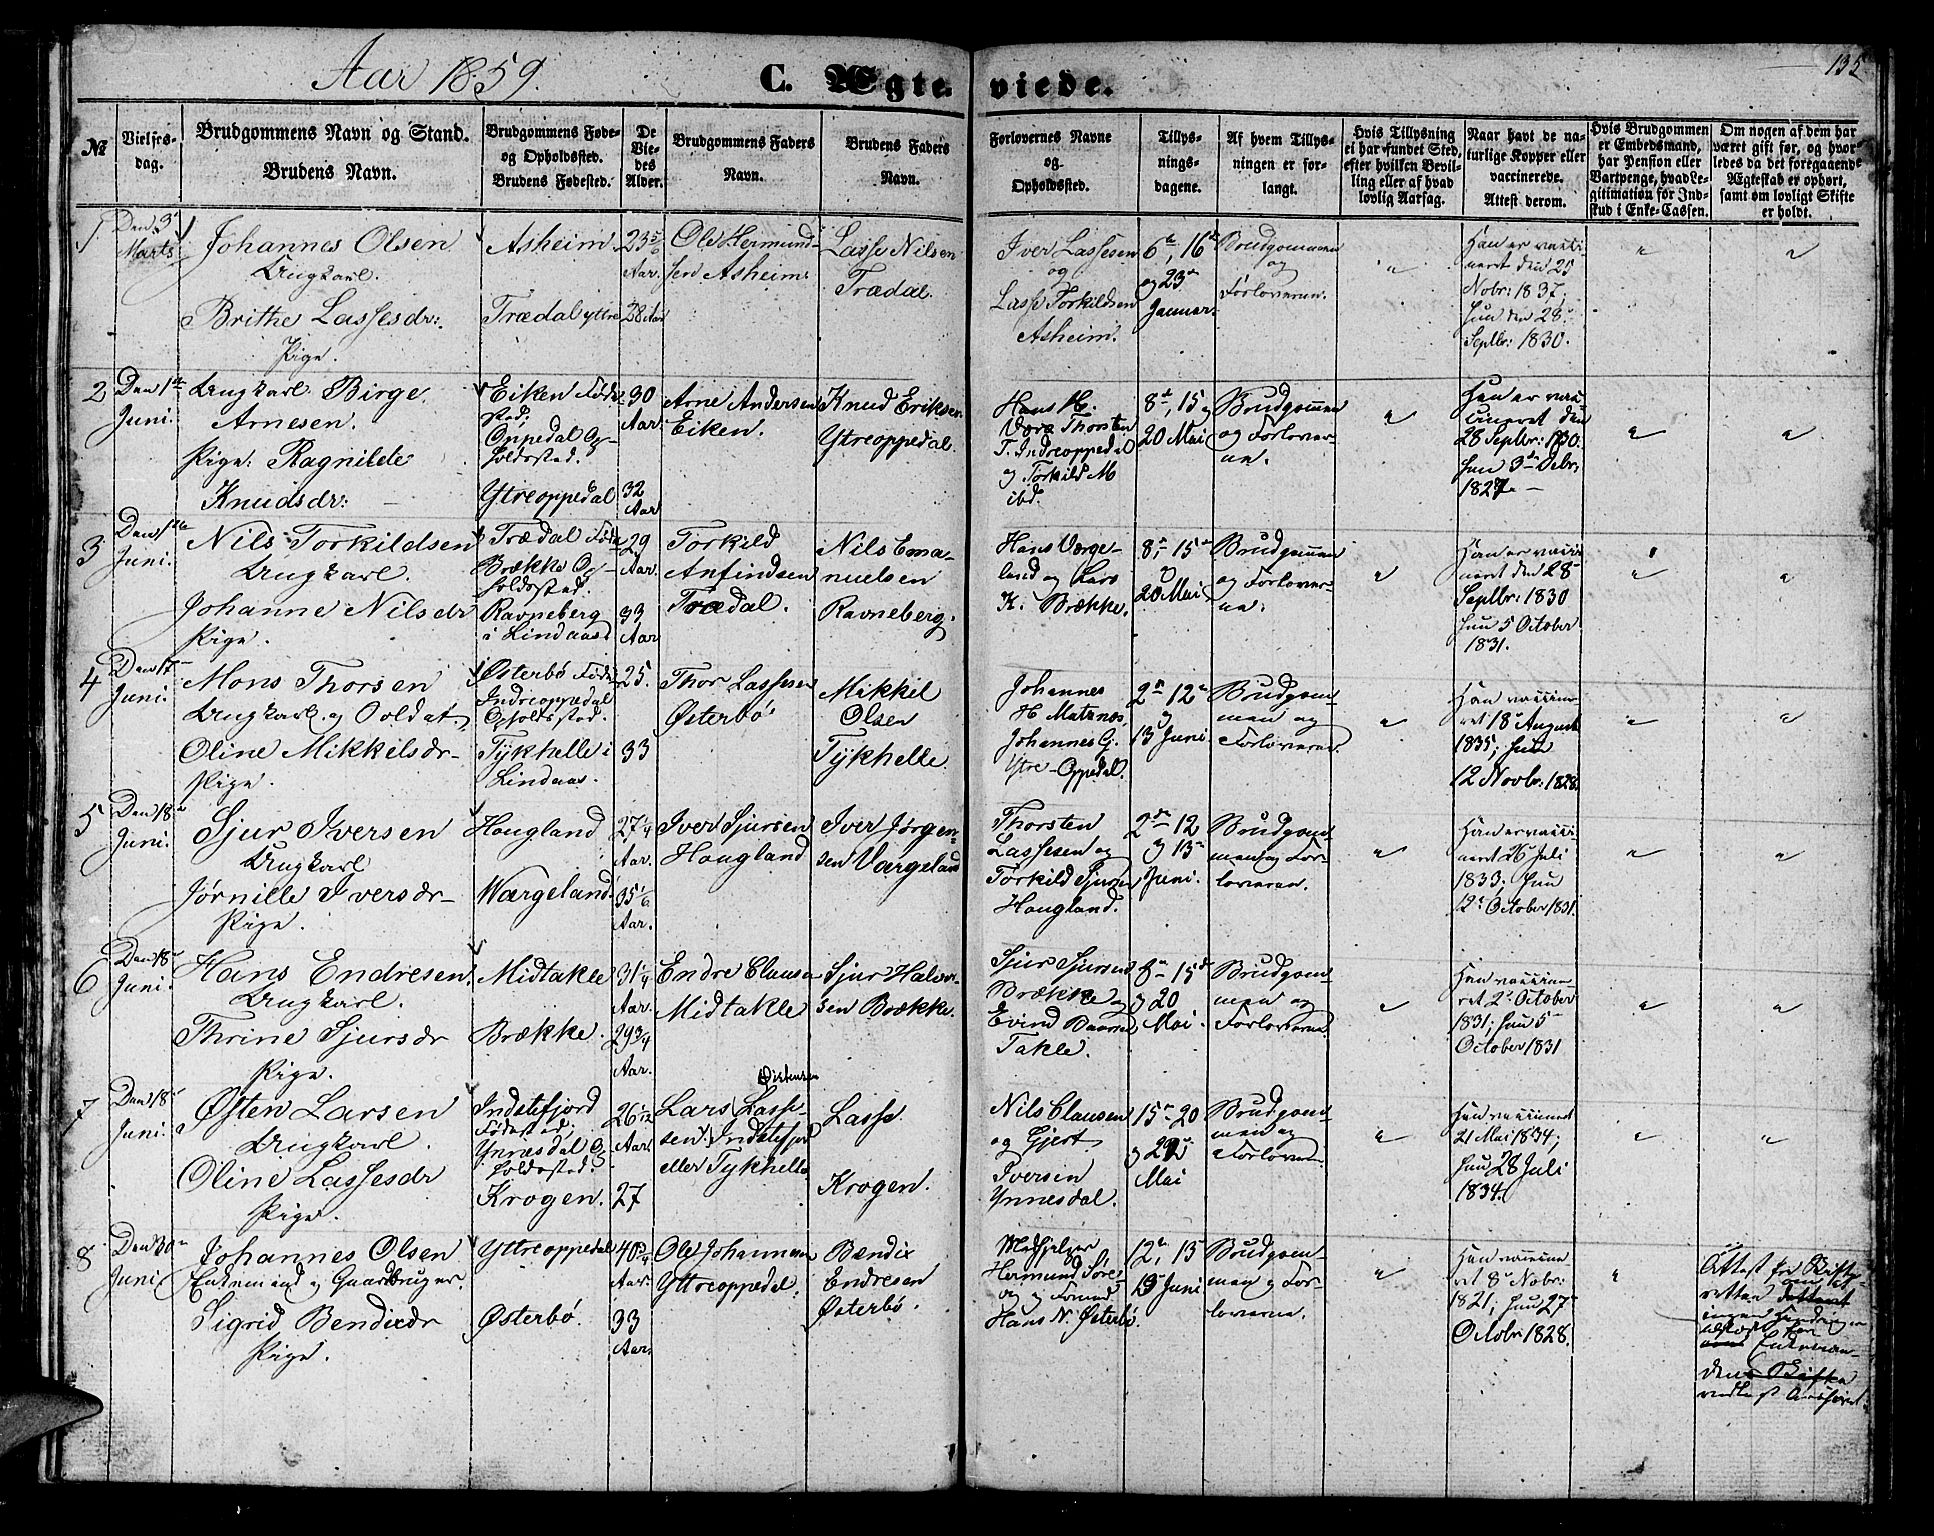 Aar 1859.
C. Ægte-
viede.
135
№
Vielses-
dag.
Brudgommens Navn og Stand.
Brudens Navn.
Brudgommens Føde-
og Opholdsted.
Brudens Fødested.
De
Vie-
des
Alder.
Brudgommens Faders
Navn.
Brudens Faders
Navn.
Forlovernes Navne
og
Opholdsted.
Tillys-
nings-
dagene.
Af hvem Tillys-
ningen er for-
langt.
Hvis Tillysning
ei har fundet Sted,
efter hvilken Bevil-
ling eller af hvad
lovlig Aarsag.
Naar havt de na-
turlige Kopper eller
vaccinerede.
Attest derom.
Hvis Brudgommen
er Embedsmand,
har Pension eller
Vartpenge, hvad Le-
gitimation for Ind-
skud i Enke-Cassen.
Om nogen af dem har
været gift før, og hvor-
ledes da det foregaaende
Ægteskab er ophørt,
samt om lovligt Skifte
er holdt.
1
Den 3
Marts
Johannes Olsen
Ungkarl.
Brithe Lassesdr:
Pige.
Asheim
Trædal yttre
23
Aar.
28 Aar
Ole Hermund-
sen Asheim
Lasse Nilsen
Trædal.
Iver Lassesen
og
Lasse Torkildsen
Asheim.
6, 16
og 23
Januar.
Brudgommen
og
Forloveren.
Han er vacci-
neret den 25
Nobr: 1837,
hun den 28
Septbr: 1830.
2
Den 1
Juni.
Ungkarl Birge
Arnesen.
Pige: Ragnilde
Knudsdr:
Eiken Føde-
sted;
Oppedal Op-
holdssted.
Ytreoppedal
30
Aar.
32
Aar
Arne Andersen
Eiken.
Knud Eriksen
Ytreoppedal.
Hans H.
Thorsten
T. Indreoppedal
og Torkild M
ibd.
8, 15 og
20 Mai
Brudgommen
og Forlover-
en.
Han er vac-
cineret den
28 Septbr: 1730.
hun 3 Debr:
1827.
3
Den
Juni.
Nils Torkildsen
Ungkarl.
Johanne Nilsdr
Pige.
Trædal Føde
Brække Op-
holdssted.
Ravneberg
i Lindaas
29
Aar.
33
Aar
Torkild
Anfindsen
Trædal.
Nils Ema-
nuelsen
Ravneberg.
Hans Værge-
land og Lars
K. Brække.
8, 15
20 Mai
Brudgommen
og Forlover-
en.
Han er vacci-
neret den 28
Septbr: 1830
hun 5 October
1831.
4
Den 17
Juni.
Mons Thorsen
Ungkarl og Soldat
Oline Mikkelsdr-
Pige.
Østerbø Føde
Indreoppedal
Opholdssted.
Tykhelle i
Lindaas.
25.
33
Thor Lassesen
Østerbø
Mikkil
Olsen
Tykhelle
Johannes
H Matsnæs,
Johannes G.
Ytre-Oppedal.
2, 12
og
13 Juni.
Brudgom-
men og
Forloveren.
Han vaccine-
ret 18 August
1835; hun
12 Novbr: 1828.
5
Den 18
Juni.
Sjur Iversen
Ungkarl
Jørnille Iversdr-
Pige.
Hougland
Wærgeland
27 1/4
Aar.
35 1/6
Aar.
Iver Sjursen
Hougland
Iver Jørgen-
sen Værgeland
Thorsten
Lassesen og
Torkild Sjursen
Hougland.
2 12
og 13
Juni.
Brudgom-
men og For-
loveren.
Han er vacci-
neret 26 Juli
1833. hun
12 October 1831.
6
Den 18
Juni.
Hans Endresen.
Ungkarl.
Thrine Sjursdr
Pige.
Midtakle
Brække.
31 1/4
Aar.
29 3/4
Aar.
Endre Clausen
Midtakle
Sjur Halvor-
sen Brække.
Sjur Sjursen
Brække og
Evind
Takle.
8 15
og 20
Mai.
Brudgom-
men og
Forloveren
Han vaccine-
ret 2 October
1831; hun 5
October 1831
7
Den 18
Juni.
Østen Larsen
Ungkarl.
Oline Lassesdr
Pige.
Indstefjord
Fødested;
Ynnesdal Op-
holdssted
Krogen.
26 1/12
Aar.
27
Østensen
Lars Lasse-
sen Indstefjord
eller Tykhelle
Lasse
Krogen.
Nils Clausen
og Gjert
Iversen
Ynnesdal.
15 20
og 22
Mai
Brudgom-
men og
Forloveren.
Han vaccineret
21 Mai 1834;
hun 28 Juli
1834.
8
Den 30
Juni
Johannes Olsen
Enkemand og Gaardbruger.
Sigrid Bendixdr
Pige.
Yttreoppedal
Østerbø.
40 3/4
Aar.
33
Aar.
Ole Johannesen
Yttreoppedal.
Bændix
Endresen
Østerbø.
Medhjelper
Hermund
og Formand
Hans N. Østerbø
12, 13
Juni
Brudgom-
men og For-
loveren
Han vaccine-
ret 8 Nobr:
1821; hun 27
Octobr 1828.
Attest fra Skifte-
retten
Enkeman-
den